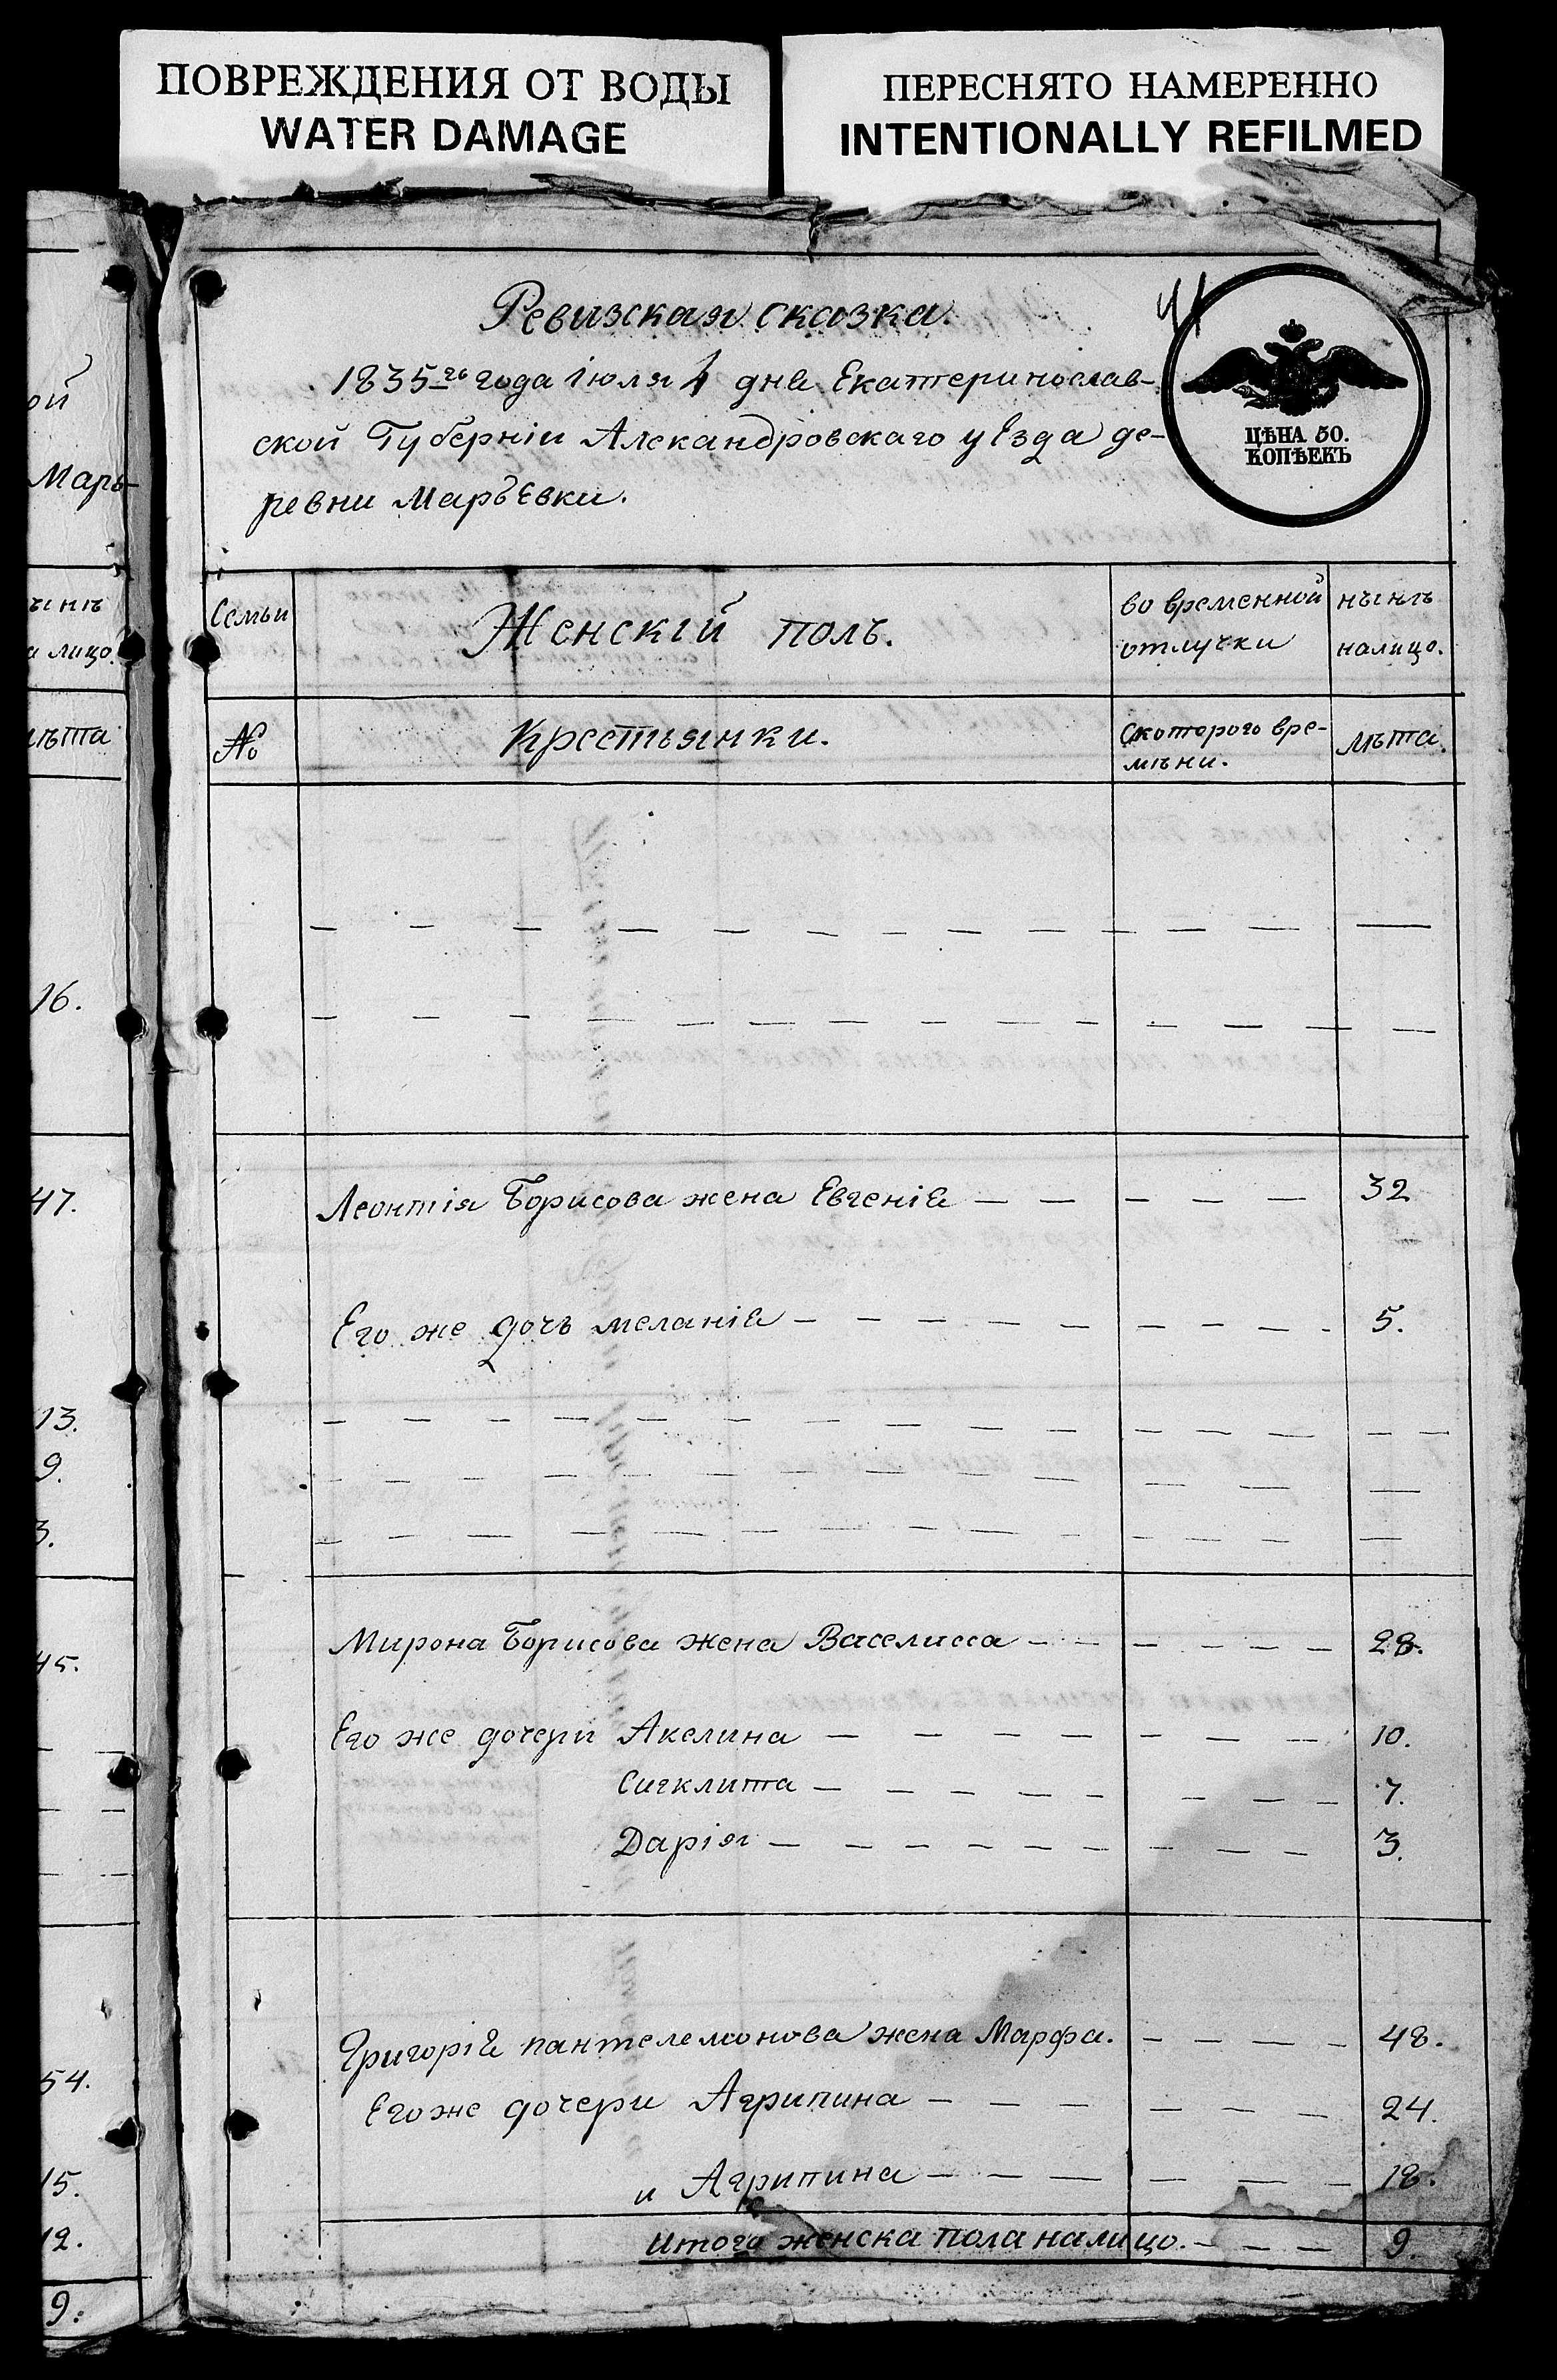 ПОВРЕЖДЕНИЯ ОТ ВОДЫ
WATER DAMAGE
ПЕРЕСНЯТО НАМЕРЕННО
INTENTIONALLY REFILMED
ой
Марь-
нынѣ
на лицо.
лѣта
16.
47.
13.
9.
3.
45.
54.
15.
12.
9.
41
Ревизская сказка.
1835го года Іюля 4 дня Екатеринослав-
ской Губерніи Александровскаго уѣзда де-
ревни Маръевки.
ЦѢНА 50.
КОПѢЕКЪ
Семьи
Женскій полъ.
во временной
отлучки
нынѣ
налицо.
№
Крестьянки.
Скоторого вре-
мѣни.
лѣта.
Леонтія Борисова жена Евгенія — — — — — 32
Его же дочь меланія — — — — — — — — — 5.
Мирона Борисова жена Васелисса — — — — — — 28.
Его же дочери Акелина — — — — — — — 10.
Сигклита — — — — — — — — 7.
Дарія — — — — — — — — — 3.
Григорія пантелемонова жена Марфа. — — — — 48.
Егоже дочери Агрипина — — — — — — 24.
и Агрипина — — — — — — 18.
Итого женска пола налицо. — — — — 9.